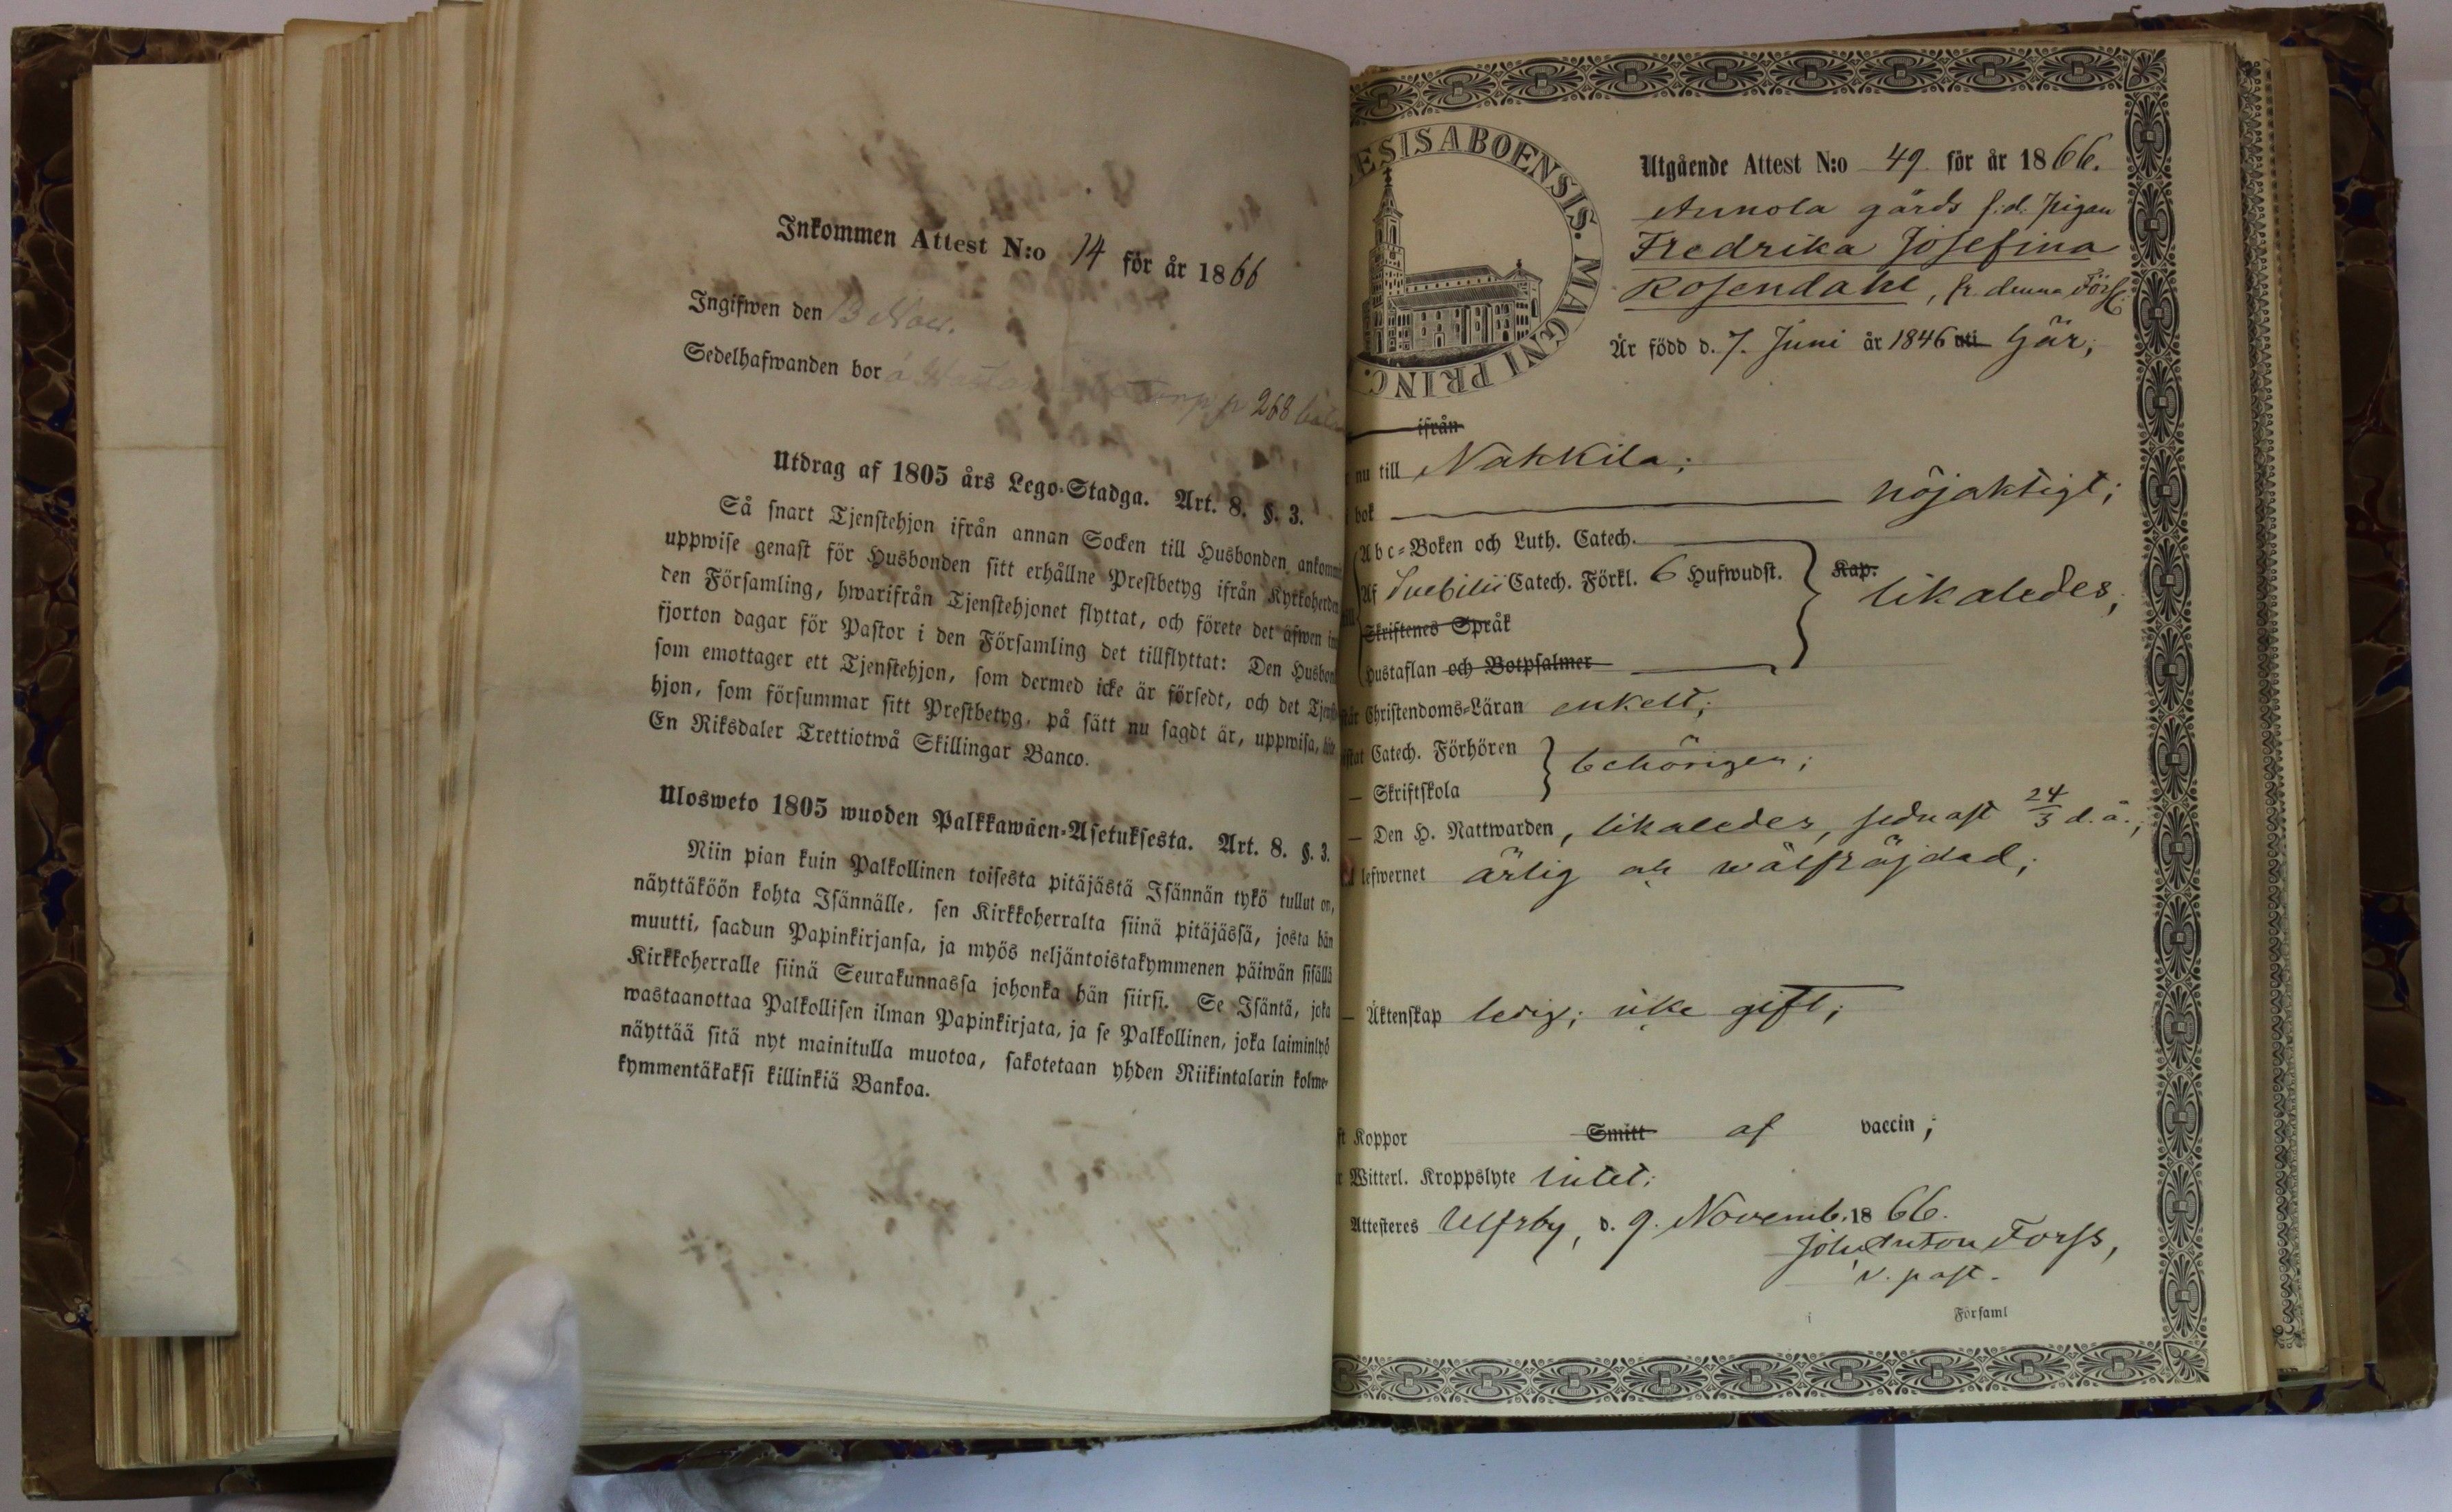 Inkommen Attest N:o 14 för år 1866
Ingifwen den 13 Nov.
Sedelhafwanden bor
268
Utdrag af 1805 års Lego-Stadga. Art. 8. §. 3.
Så snart Tjenstehjon ifrån annan Socken till Husbonden
uppwise genast för Husbonden sitt erhållne Prestbetyg ifrån
den Församling, hwarifrån Tjenstehjonet flyttat, och förete det äfwen
fjorton dagar för Pastor i den Församling det tillflyttat: Den
som emottager ett Tjenstehjon, som dermed icke är försedt, och det
hjon, som försummar sitt Prestbetyg, på sätt nu sagdt är, uppwisa,
En Riksdaler Trettiotwå Skillingar Banco.
Ulosweto 1805 wuoden Palkkawäen-Asetuksesta. Art. 8. §. 3.
Niin pian kuin Palkollinen toisesta pitäjästä Isännän tykö tullut on,
näyttäköön kohta Isännälle, sen Kirkkoherralta siinä pitäjässä, josta hän
muutti, saadun Papinkirjansa, ja myös neljäntoistakymmenen päiwän sisällä
Kirkkoherralle siinä Seurakunnassa johonka hän siirsi. Se Isäntä, joka
wastaanottaa Palkollisen ilman Papinkirjata, ja se Palkollinen, joka laiminlyö
näyttää sitä nyt mainitulla muotoa, sakotetaan yhden Riikintalarin kolme-
kymmentäkaksi killinkiä Bankoa.
ESIS ABOENSIS. MAGNI PRINC.
Utgående Attest N:o 49 för år 1866.
Annola gårds f. d. pigan
Fredrika Josefina
Rosendahl, fr. denna Förs.
Är född d. 7. Juni år 1846 uti här;
ifrån
nu till Nakkila;
bok nöjaktigt;
Abc-Boken och Luth. Catech.
Af Svebilii Catech. Förkl. 6 Hufwudst. Kap. likaledes;
Skriftenes Språk
Hustaflan och Botpsalmer
Christendoms-Läran enkelt;
Catech. Förhören behörigen;
— Skriftskola
— Den H. Nattwarden, likaledes, sednast 24/3 d. å.;
lefwernet ärlig och wälfräjdad;
— Äktenskap ledig; icke gift;
Koppor Smitt af vaccin;
Witterl. Kroppslyte intet;
Attesteres Ulfsby, d. 9. Novemb. 1866.
Joh. Anton Forss,
v. past.
Församl